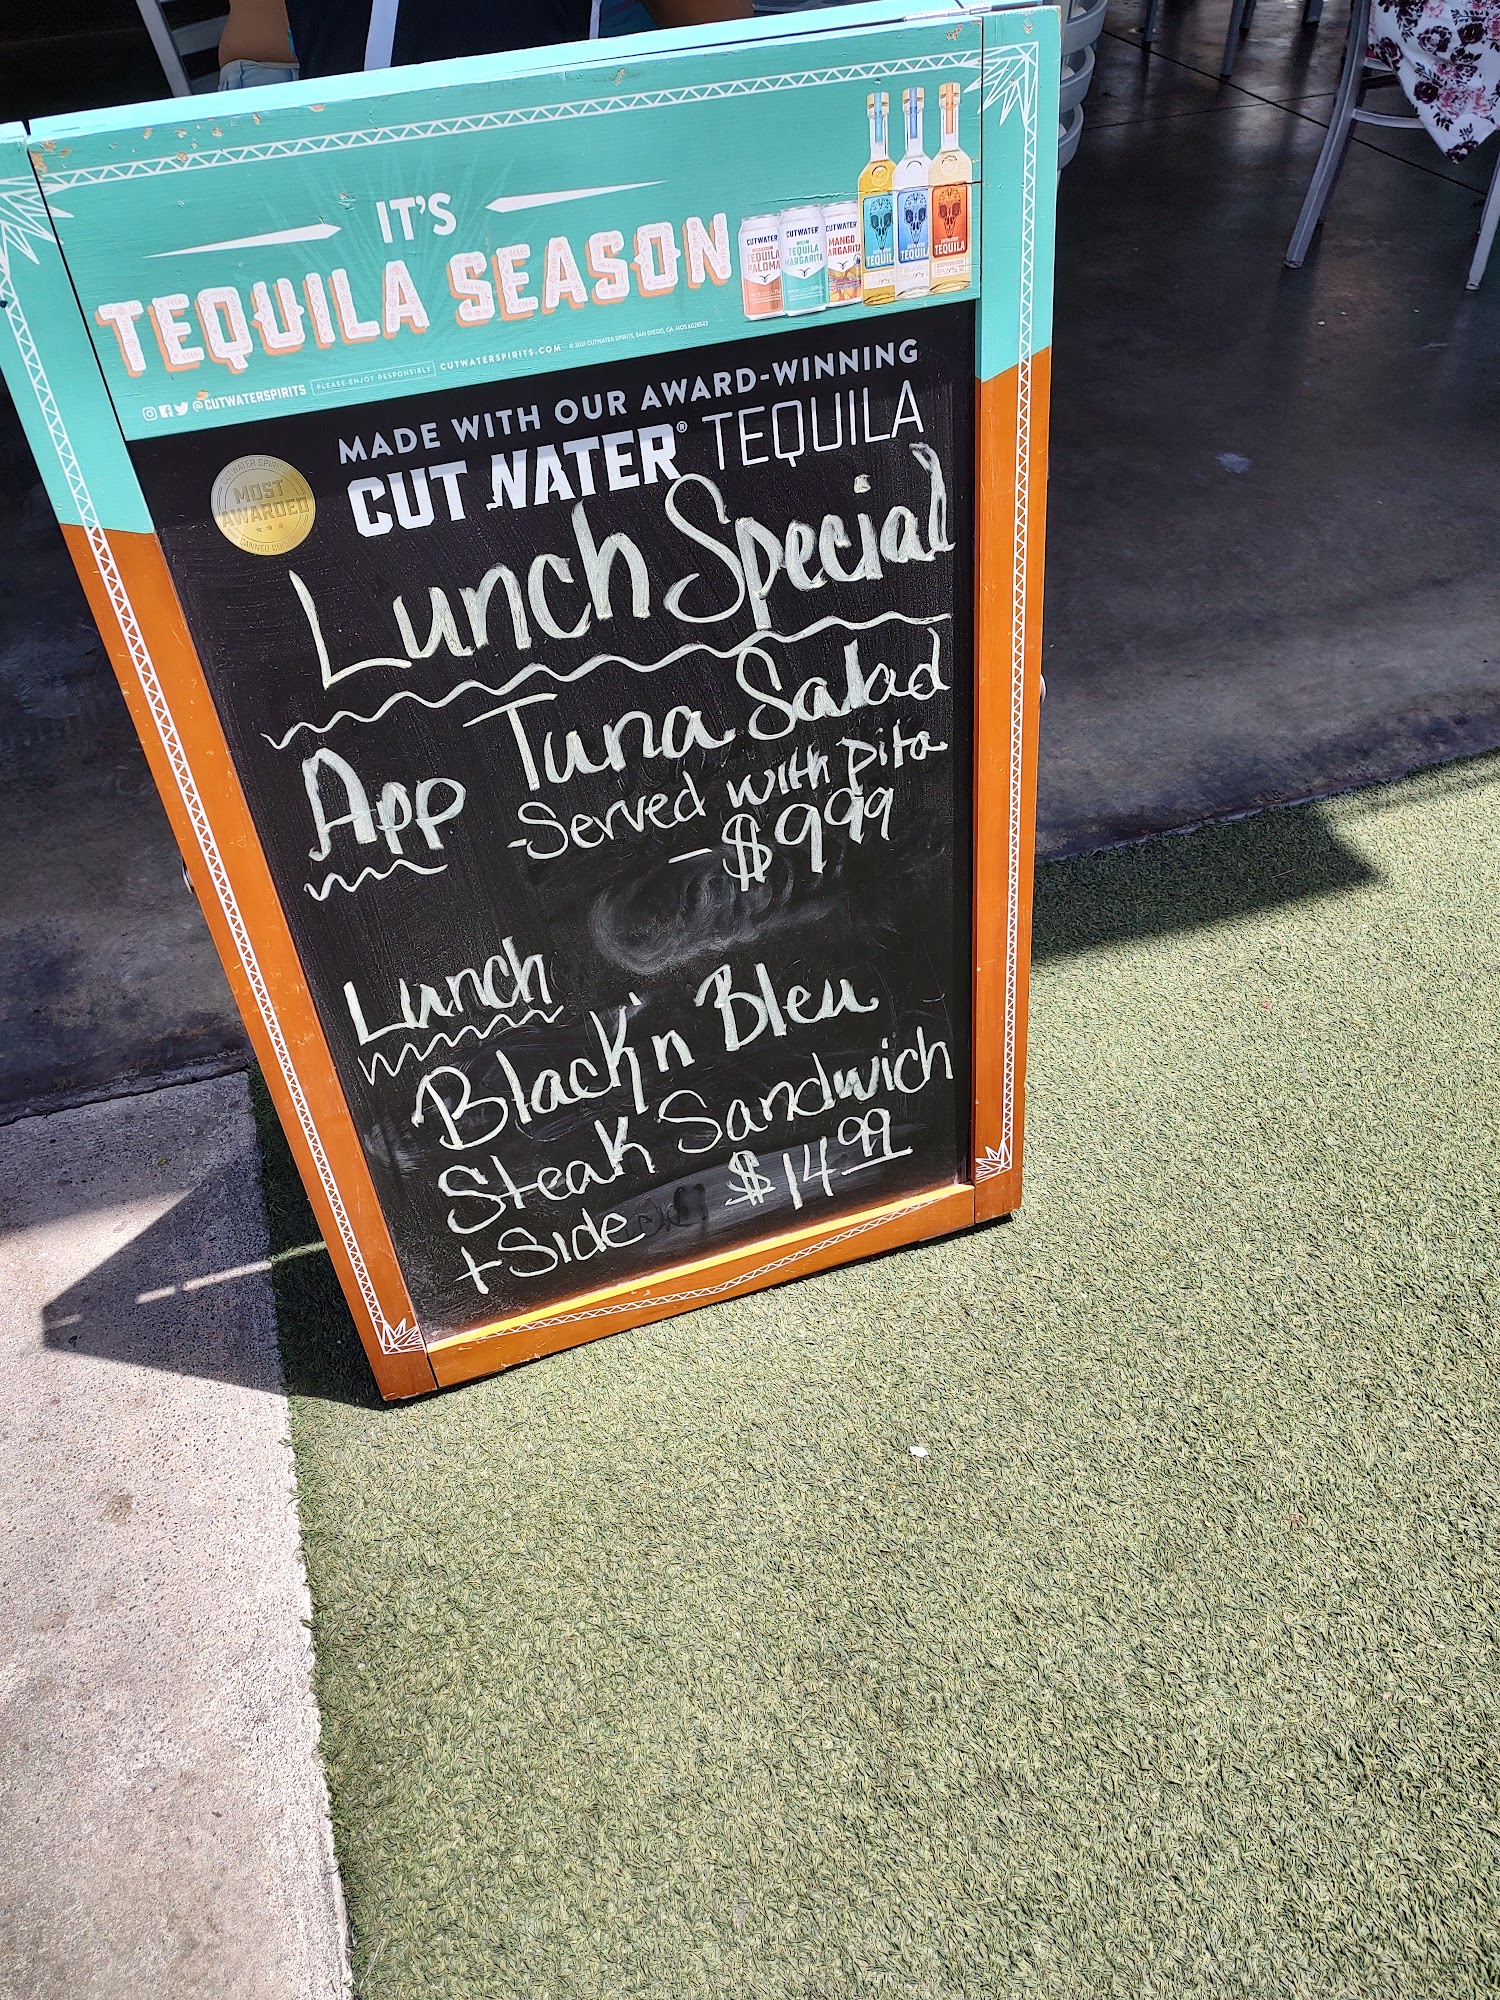 IT'S
TEQUILA SEASON
CUTWATER TEQUILA PALOMA
CUTWATER TEQUILA MARGARITA
CUTWATER MANGO MARGARITA
TEQUILA
TEQUILA
TEQUILA
@CUTWATERSPIRITS PLEASE ENJOY RESPONSIBLY CUTWATERSPIRITS.COM © 2021 CUTWATER SPIRITS, SAN DIEGO, CA.
MADE WITH OUR AWARD-WINNING
CUTWATER® TEQUILA
CUTWATER SPIRITS
MOST AWARDED
Lunch Special
App Tuna Salad
-Served with pita
- $9.99
Lunch
Black'n Bleu
Steak Sandwich
+ Side $14.99